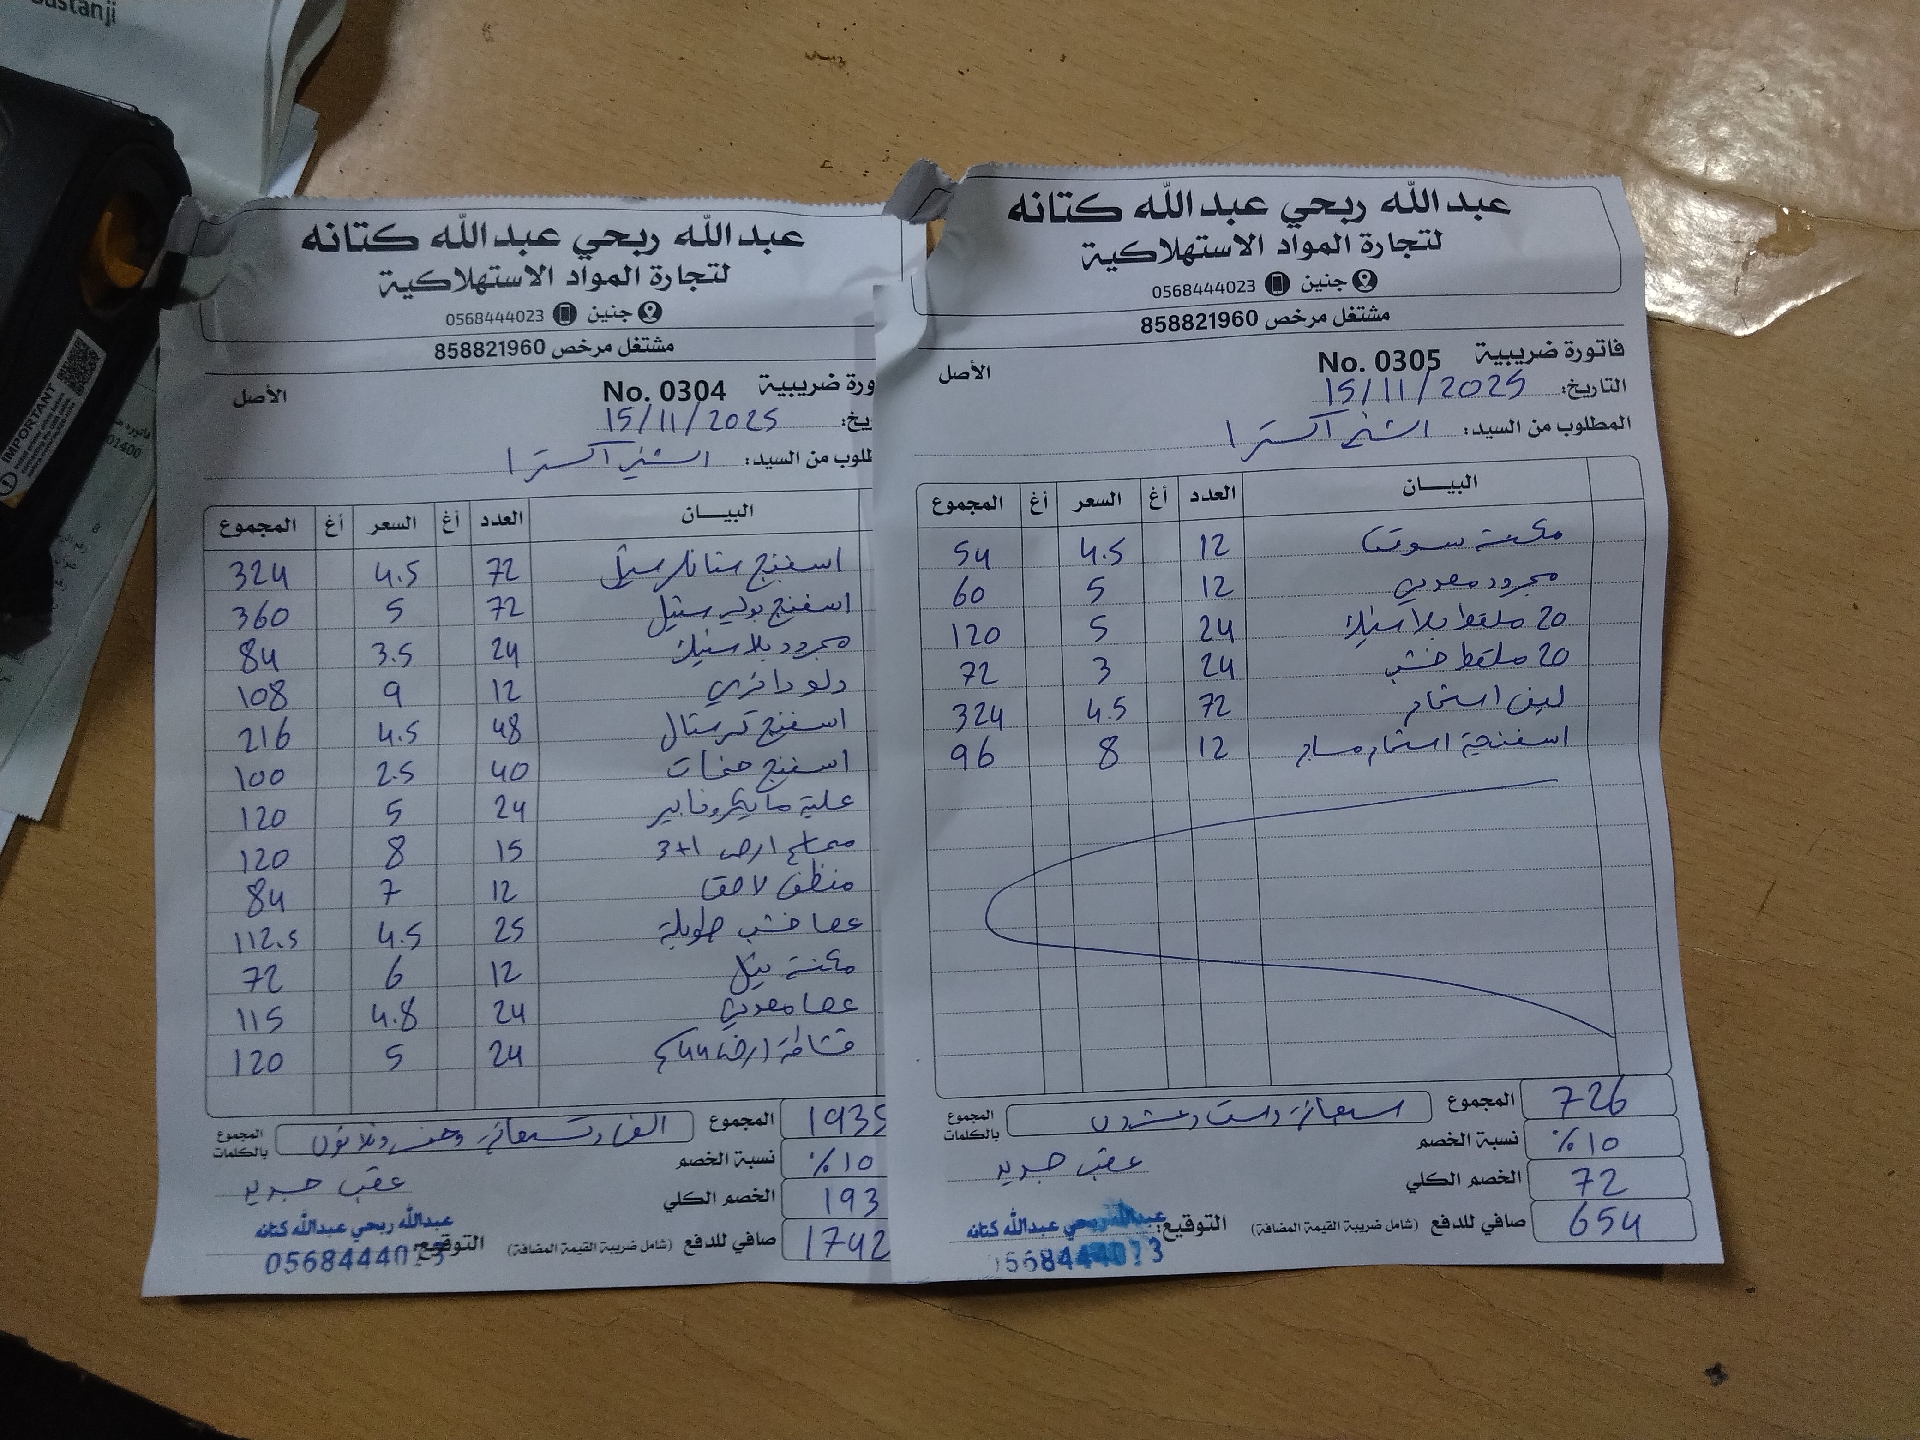 عبدالله ربحي عبدالله كتانه
لتجارة المواد الاستهلاكية
جنين 0568444023
مشتغل مرخص 858821960
ورة ضريبية No. 0304 الأصل
يخ: 15/11/2025
طلوب من السيد: الشني اكسترا
البيـــان العدد أغ السعر أغ المجموع
اسفنج ستانلس ستيل 72 4.5 324
اسفنج بولي ستيل 72 5 360
مجرود بلاستيك 24 3.5 84
دلو دائري 12 9 108
اسفنج كرستال 48 4.5 216
اسفنج 40 2.5 100
علبة مايكروفايبر 24 5 120
ممساح ارض 3+1 15 8 120
منظف لاصق 12 7 84
عصا خشب طويلة 25 4.5 112.5
مكنسة 12 6 72
عصا معدني 24 4.8 115
قشاطة ارض 44 24 5 120
المجموع 1935
المجموع بالكلمات الف وتسعمائة وخمس وثلاثون
نسبة الخصم 10%
عقب جديد
الخصم الكلي 193
صافي للدفع (شامل ضريبة القيمة المضافة) 1742
التوقيع:
عبدالله ربحي عبدالله كتانه
0568444023
عبدالله ربحي عبدالله كتانه
لتجارة المواد الاستهلاكية
جنين 0568444023
مشتغل مرخص 858821960
فاتورة ضريبية No. 0305 الأصل
التاريخ: 15/11/2025
المطلوب من السيد: الشني اكسترا
البيـــان العدد أغ السعر أغ المجموع
مكنسة سوفت 12 4.5 54
مجرود معدني 12 5 60
20 ملقط بلاستيك 24 5 120
20 ملقط خشب 24 3 72
ليف استحمام 72 4.5 324
اسفنجة استحمام مساج 12 8 96
المجموع 726
المجموع بالكلمات سبعمائة وست وعشرون
نسبة الخصم 10%
عقب جديد
الخصم الكلي 72
صافي للدفع (شامل ضريبة القيمة المضافة) 654
التوقيع:
عبدالله ربحي عبدالله كتانه
0568444023
IMPORTANT